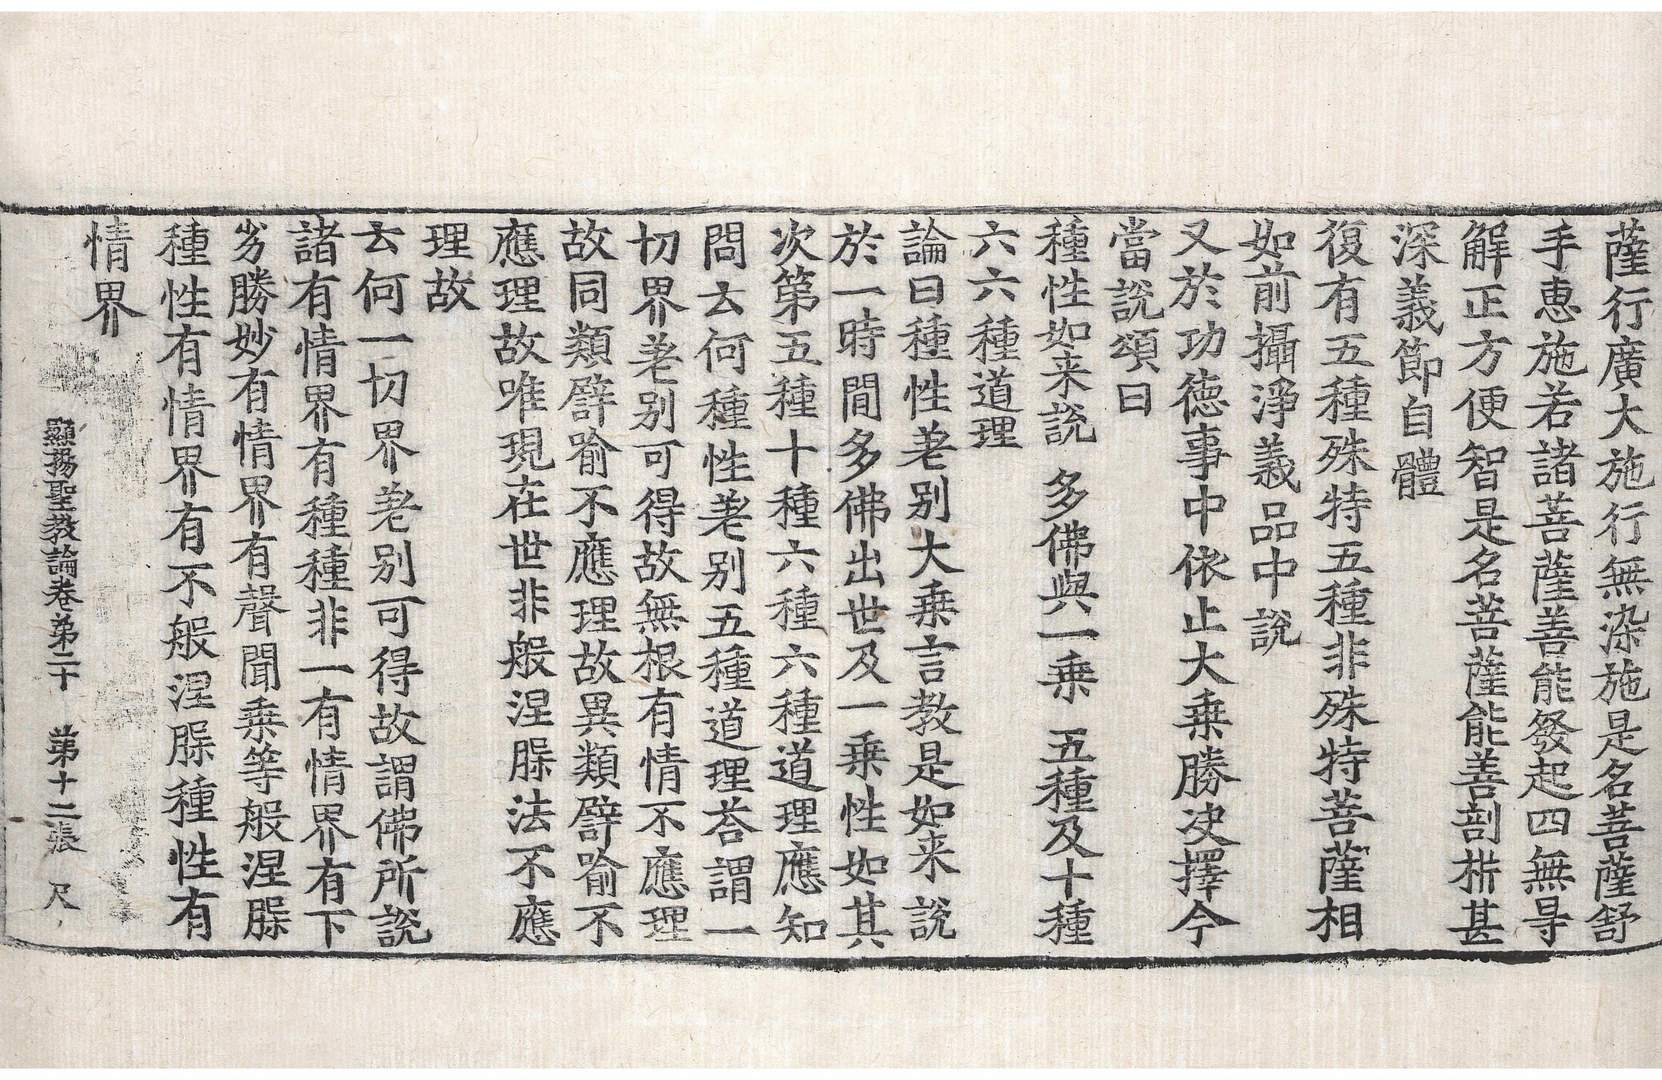 薩行廣大施行無染施是名菩薩舒
手惠施若諸菩薩善能發起四無㝵
解正方便智是名菩薩能善剖㭊甚
深義節自體
復有五種殊特五種非殊特菩薩相
如前攝淨義品中說
又於功德事中依止大乗勝决擇今
當說頌曰
種性如来說　多佛與一乗　五種及十種
六六種道理
論曰種性差别大乗言教是如来說
於一時間多佛出世及一乗性如其
次第五種十種六種六種道理應知
問云何種性差别五種道理荅謂一
切界差别可得故無根有情不應理
故同類譬喻不應理故異類譬喻不
應理故唯現在世非般涅䏶法不應
理故
云何一切界差别可得故謂佛所說
諸有情界有種種非一有情界有下
劣勝妙有情界有聲聞乗等般涅䏶
種性有情界有不般涅䏶種性有
情界
顯揚聖教論卷第二十　第十二張　尺